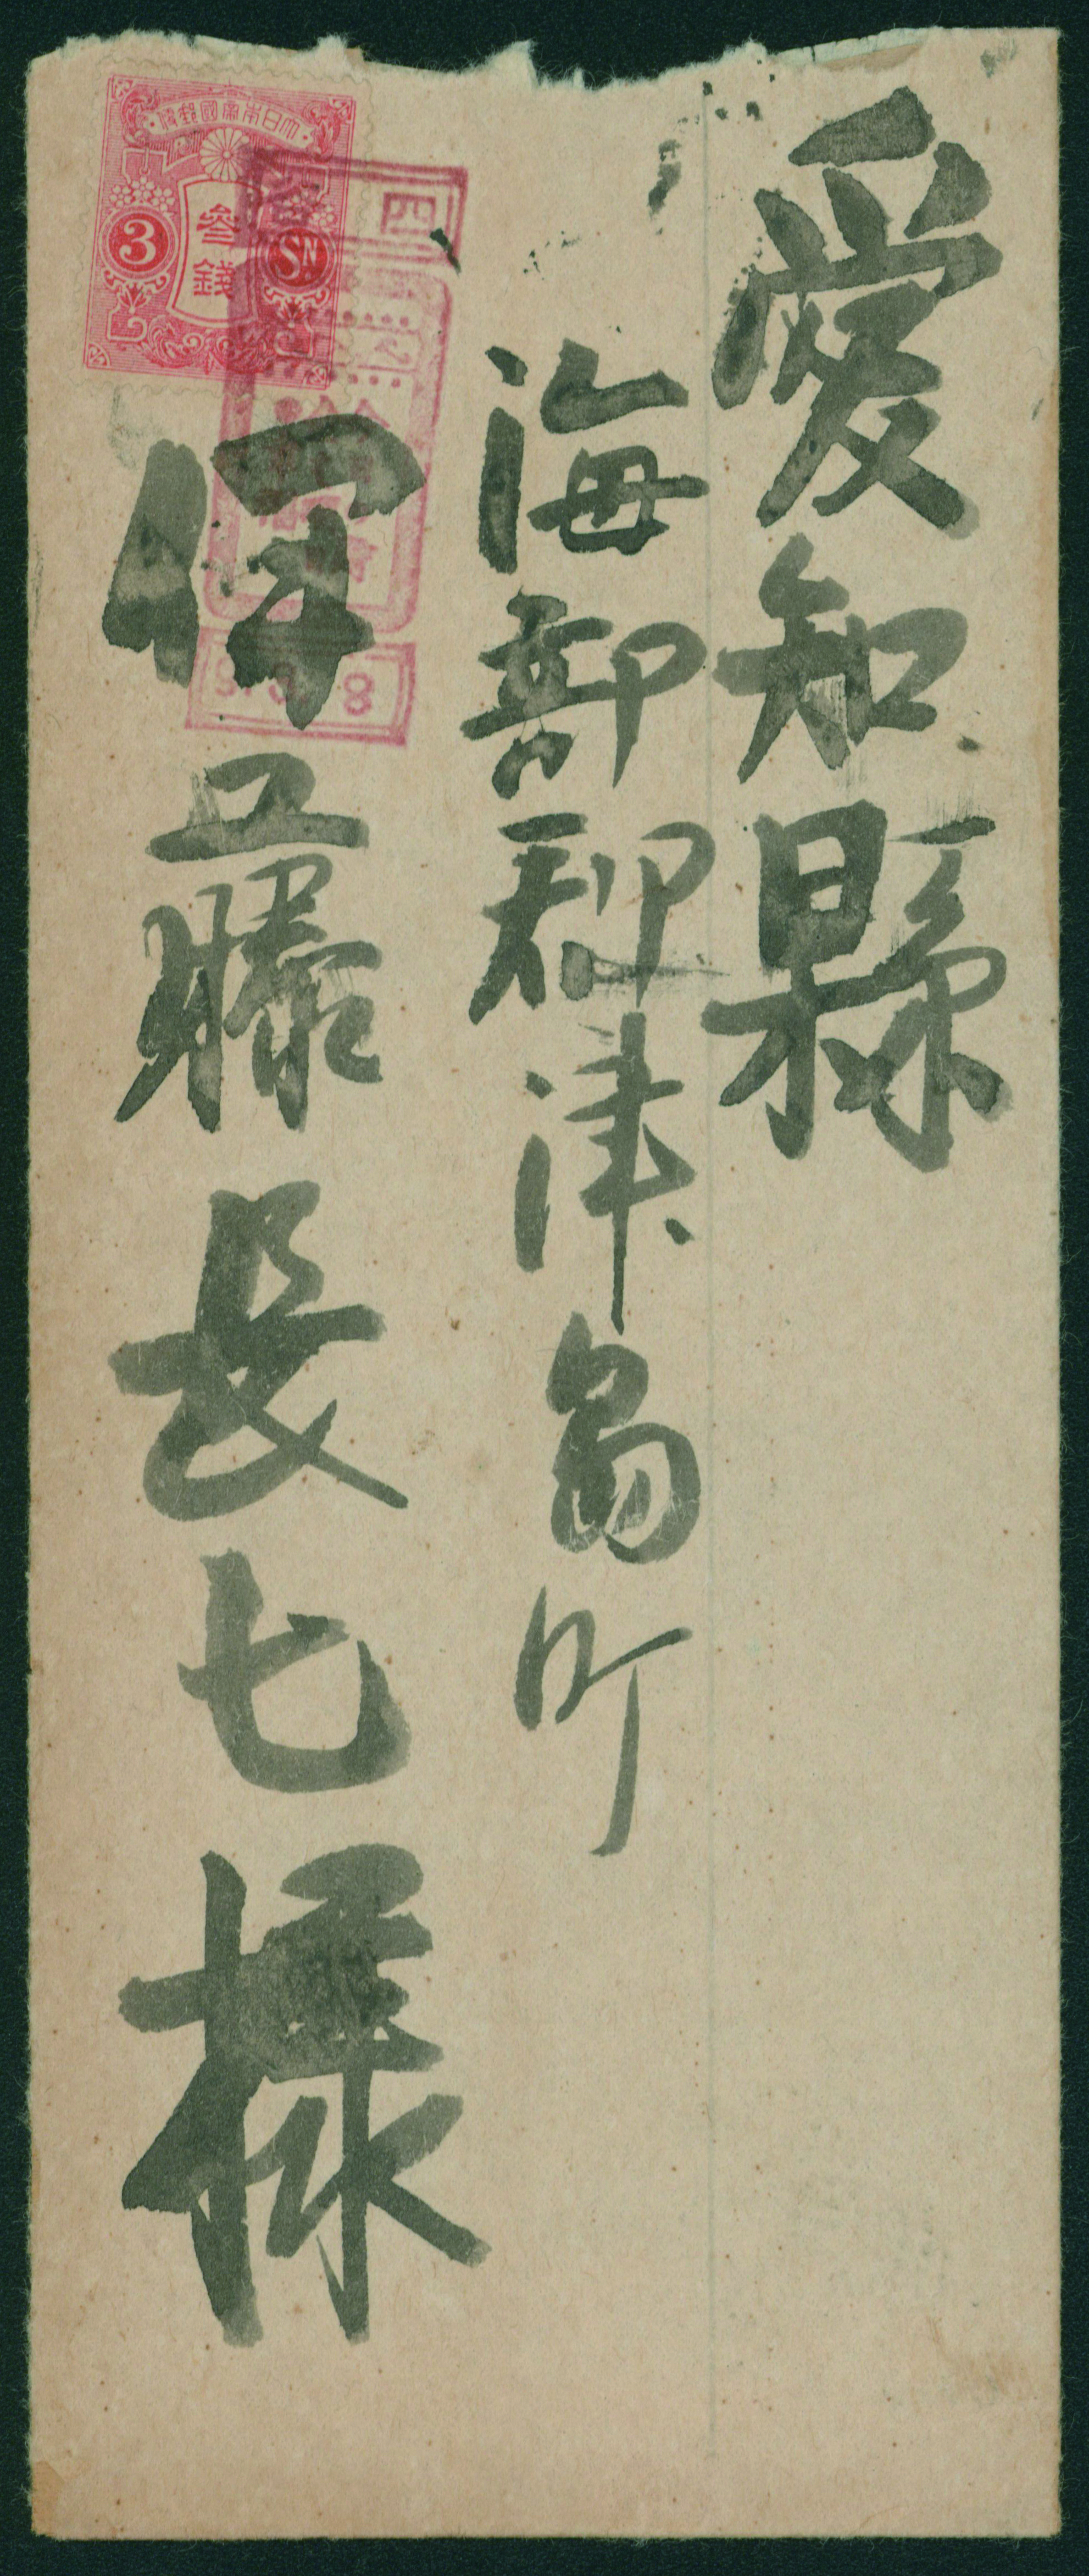 愛知縣
海部郡津島町
伊藤長七様
大日本帝國郵便
3
参錢
SN
四
8